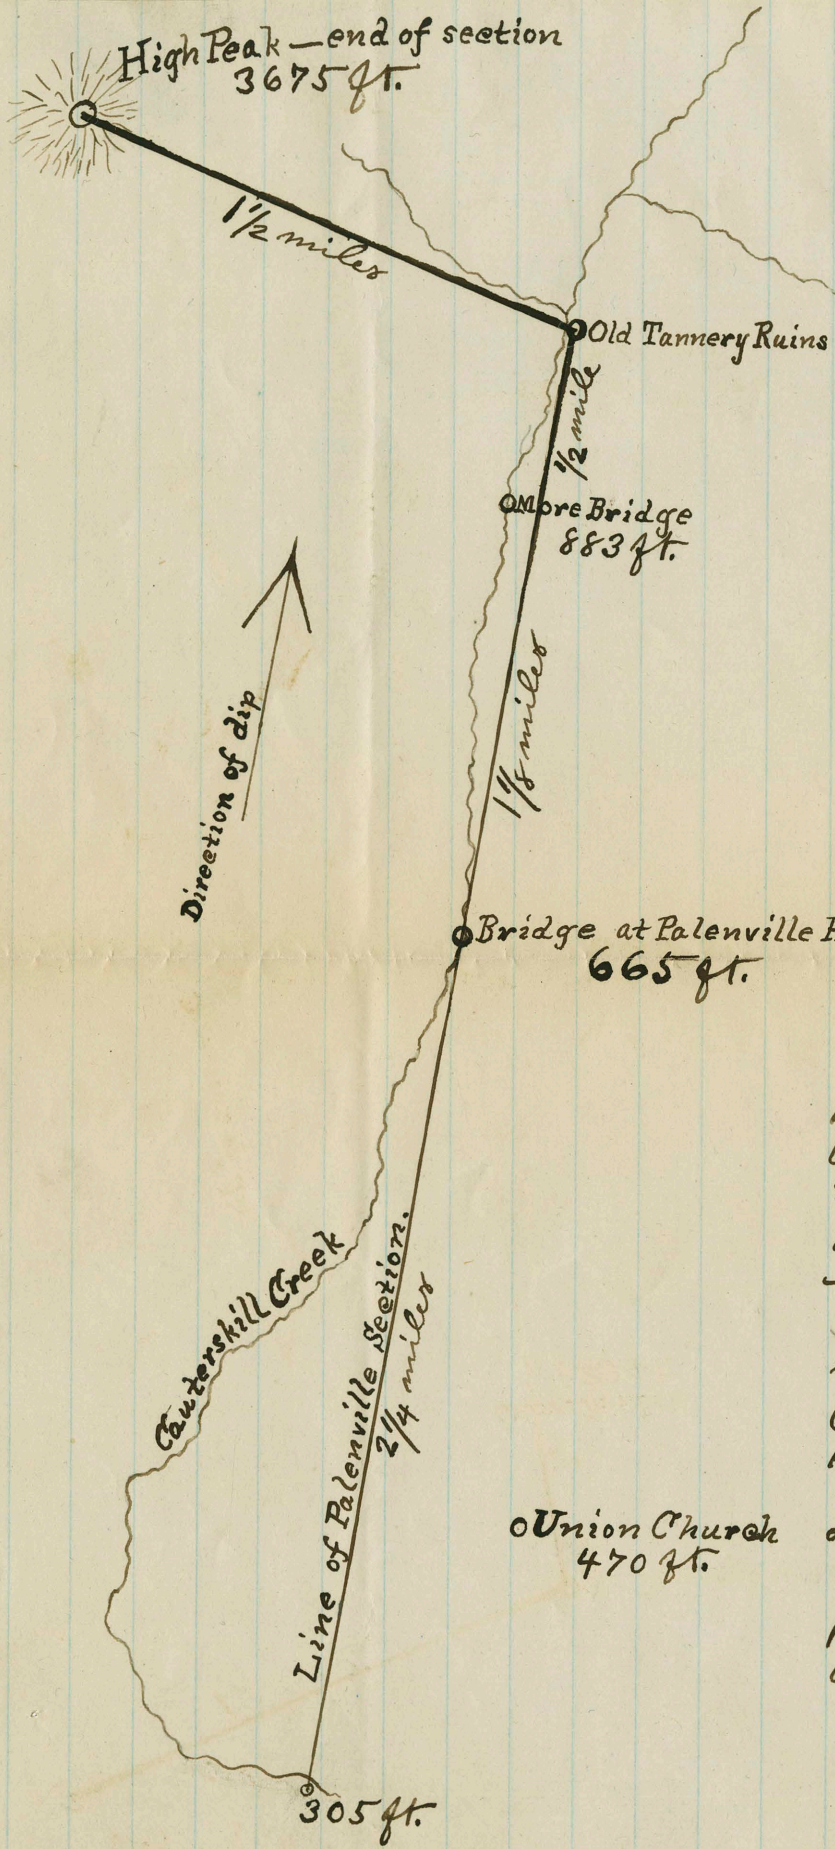 High Peak — end of section
3675 ft.
1 1/2 miles
Old Tannery Ruins
1/2 mile
More Bridge
883 ft.
1 1/8 miles
Direction of dip
Bridge at Palenville
665 ft.
Cauterskill Creek
Line of Palenville Section.
2 1/4 miles
Union Church
470 ft.
305 ft.